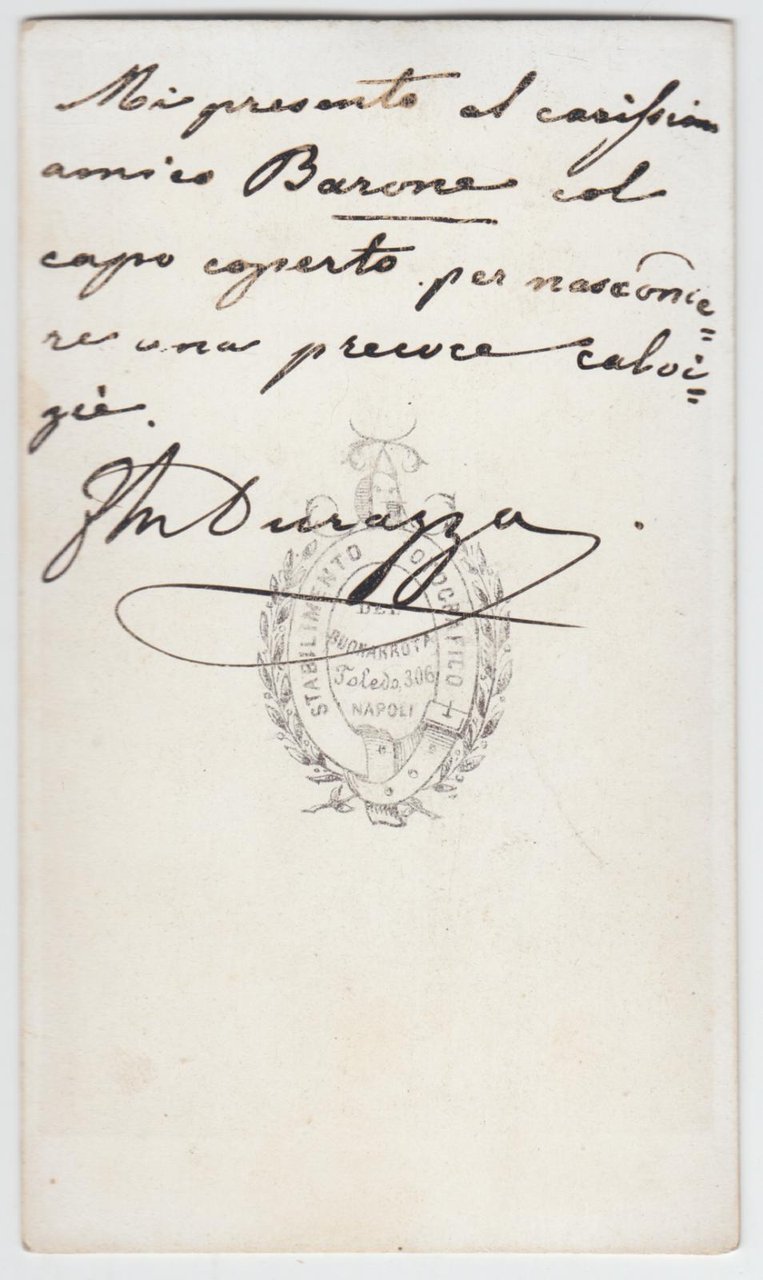 Mi presento al carissimo
amico Barone col
capo coperto per nasconde=
re una precoce calvi=
zie.
FM Durazzo
STABILIMENTO FOTOGRAFICO
DEL
BUONARROTI
Toledo, 306
NAPOLI